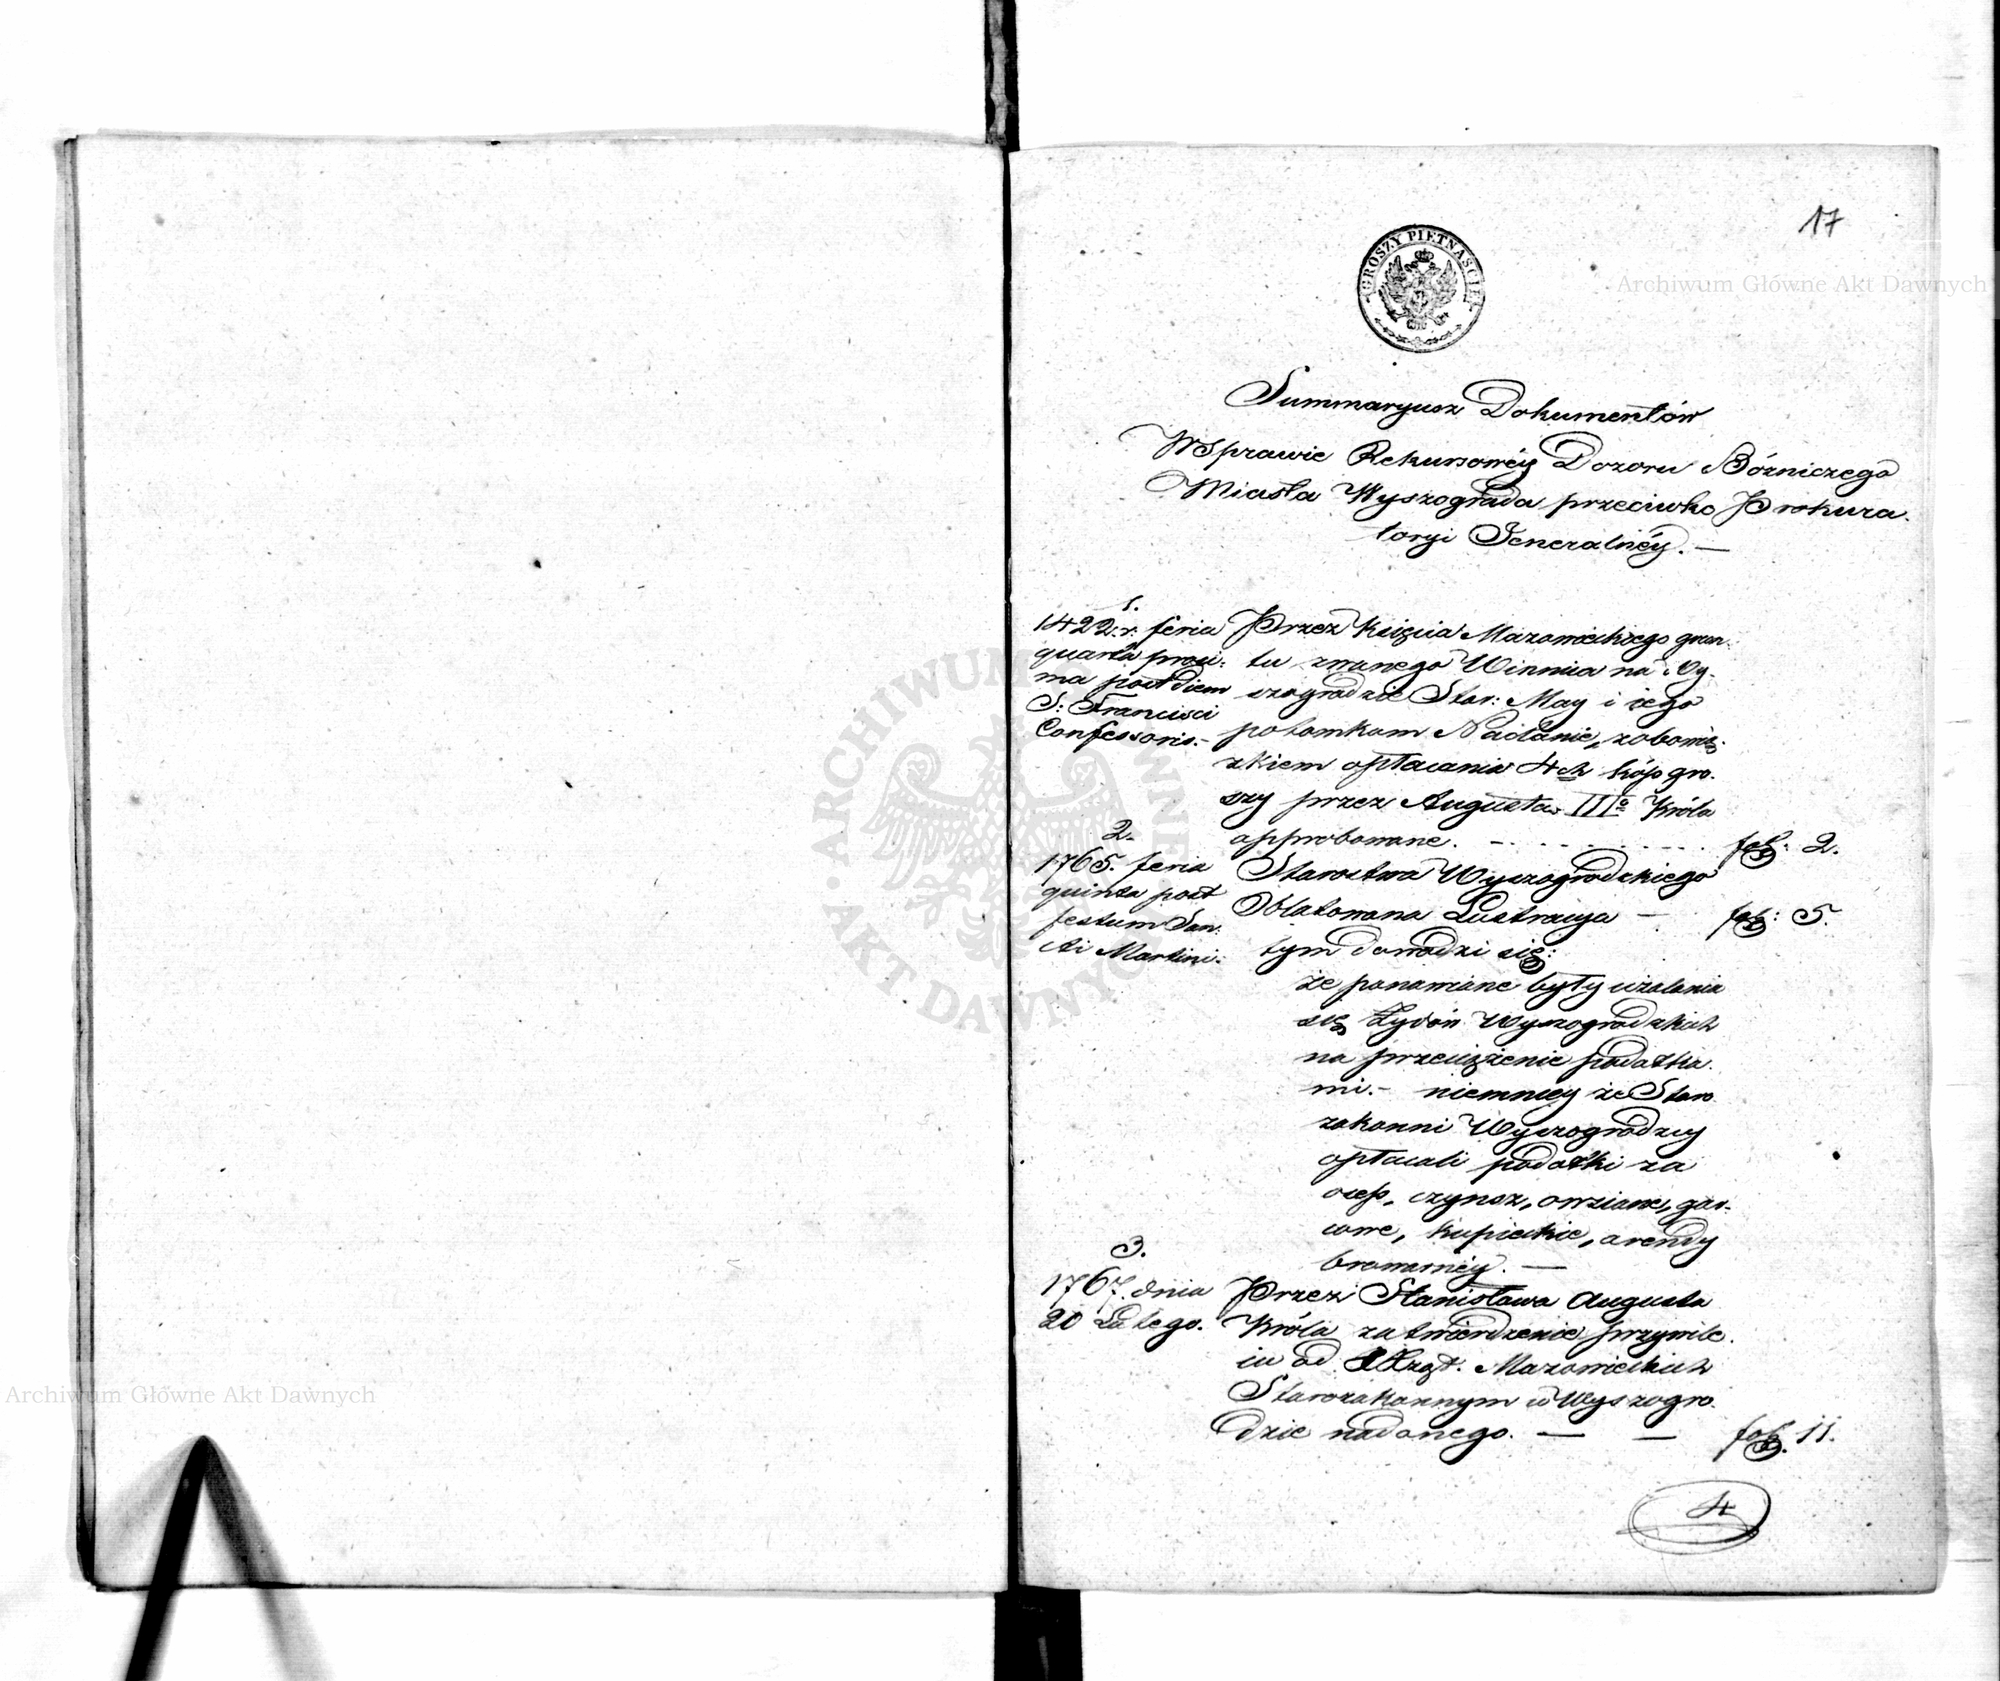 17
GROSZY PIĘTNAŚCIE
Archiwum Główne Akt Dawnych
Summaryusz Dokumentów
W Sprawie Rekursowéy Dozoru Bóżniczego
Miasta Wyszogroda przeciwko Prokura-
toryi Jeneralnéy. —
1.
1422. r. feria
quarta proxi:
ma post diem
S: Francisci
Confessoris.-
Przez Księcia Mazowieckiego grun:
tu zwanego Winnica na Wy-
szogrodzie Star: May i iego
potomkom Nadanie, zobowią-
zkiem opłacania 4ch kóp gro-
szy przez Augusta IIIo Króla
approbowane. - . . . . . . . . fol: 2.
2.
1765. feria
quinta post
festum San:
cti Martini:
Starostwa Wyszogrodzkiego
Oblatowana Lustracya — fol: 5.
tym dowodzi się:
że ponawiane były użalenia
się Żydów Wyszogrodzkich
na przeciążenie podatka-
mi.- niemniey że Staro
zakonni Wyszogrodzcy
opłacali podatki za
osep, czynsz, owsiane, gar-
cowe, kupieckie, arendy
browarnéy. —
3.
1767. dnia
20 Lutego.
Przez Stanisława Augusta
Króla zatwierdzenie przywile-
iu od XXżąt. Mazowieckich
Starozakonnym w Wyszogro-
dzie nadanego. — — fol. 11.
4
ARCHIWUM GŁÓWNE AKT DAWNYCH
Archiwum Główne Akt Dawnych